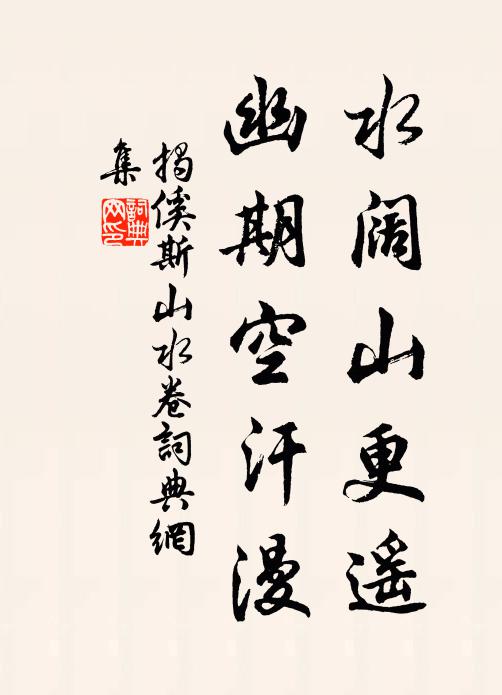 水阔山更遥
幽期空汗漫
揭傒斯山水卷詞典網
集
詞典网印